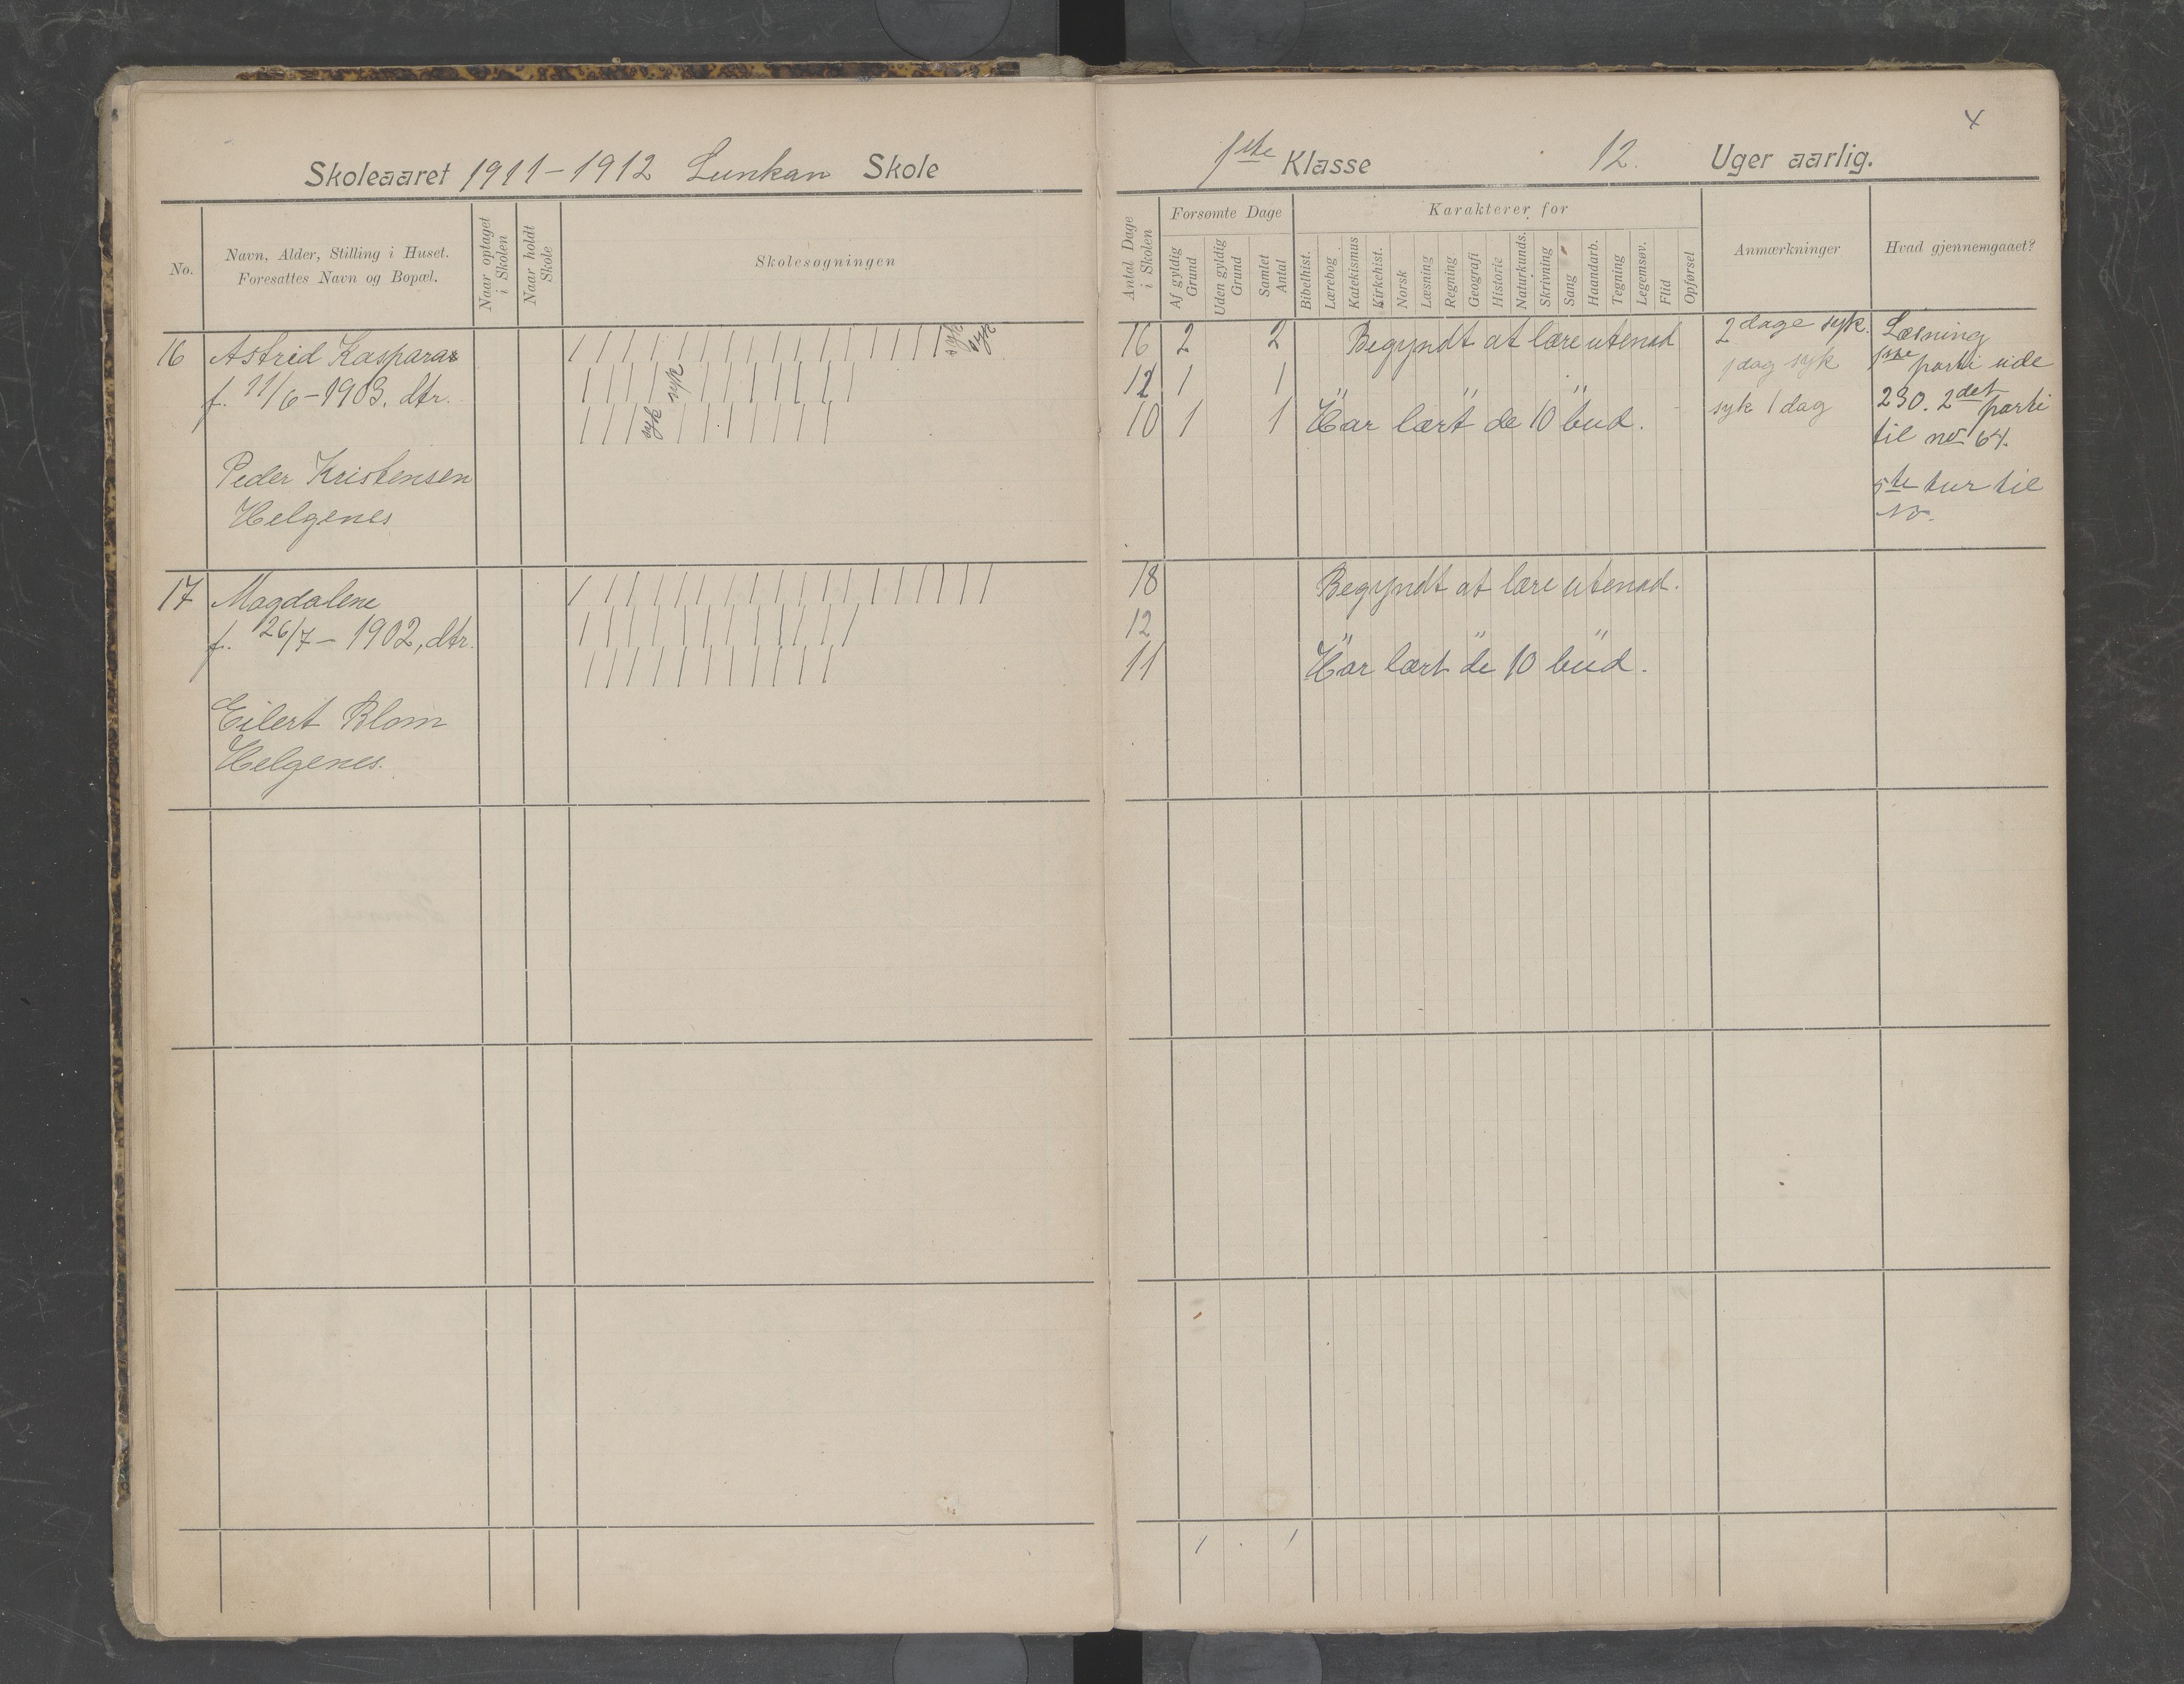 Skoleaaret 1911-1912 Lunkan Skole
No.
Navn, Alder, Stilling i Huset.
Foresattes Navn og Bopæl.
Naar optaget
i Skolen
Naar holdt
Skole
Skolesøgningen
16 Astrid Kaspara
f. 11/6-1903. dtr.
Peder Kristensen
Helgenes
syk
syk
syk
syk
17 Magdalene
f. 26/7- 1902, dtr.
Eilert Blom
Helgenes.
x
1ste Klasse 12. Uger aarlig.
Antal Dage
i Skolen
Forsømte Dage
Af gyldig
Grund
Uden gyldig
Grund
Samlet
Antal
Karakterer for
Bibelhist.
Lærebog
Katekismus
Kirkehist.
Norsk
Læsning
Regning
Geografi
Historie
Naturkunds.
Skrivning
Sang
Haandarb.
Tegning
Legemsøv.
Flid
Opførsel
Anmærkninger
Hvad gjennemgaaet?
16 2 2 Begyndt at lære utenad 2 dage syk.
12 1 1 " " " 1 dag syk
10 1 1 Har lært de 10 bud. syk 1 dag
Læsning
1ste parti side
230. 2det parti
til no 64.
5te tur til
18 Begyndt at lære utenad.
12 " " "
11 Har lært de 10 bud.